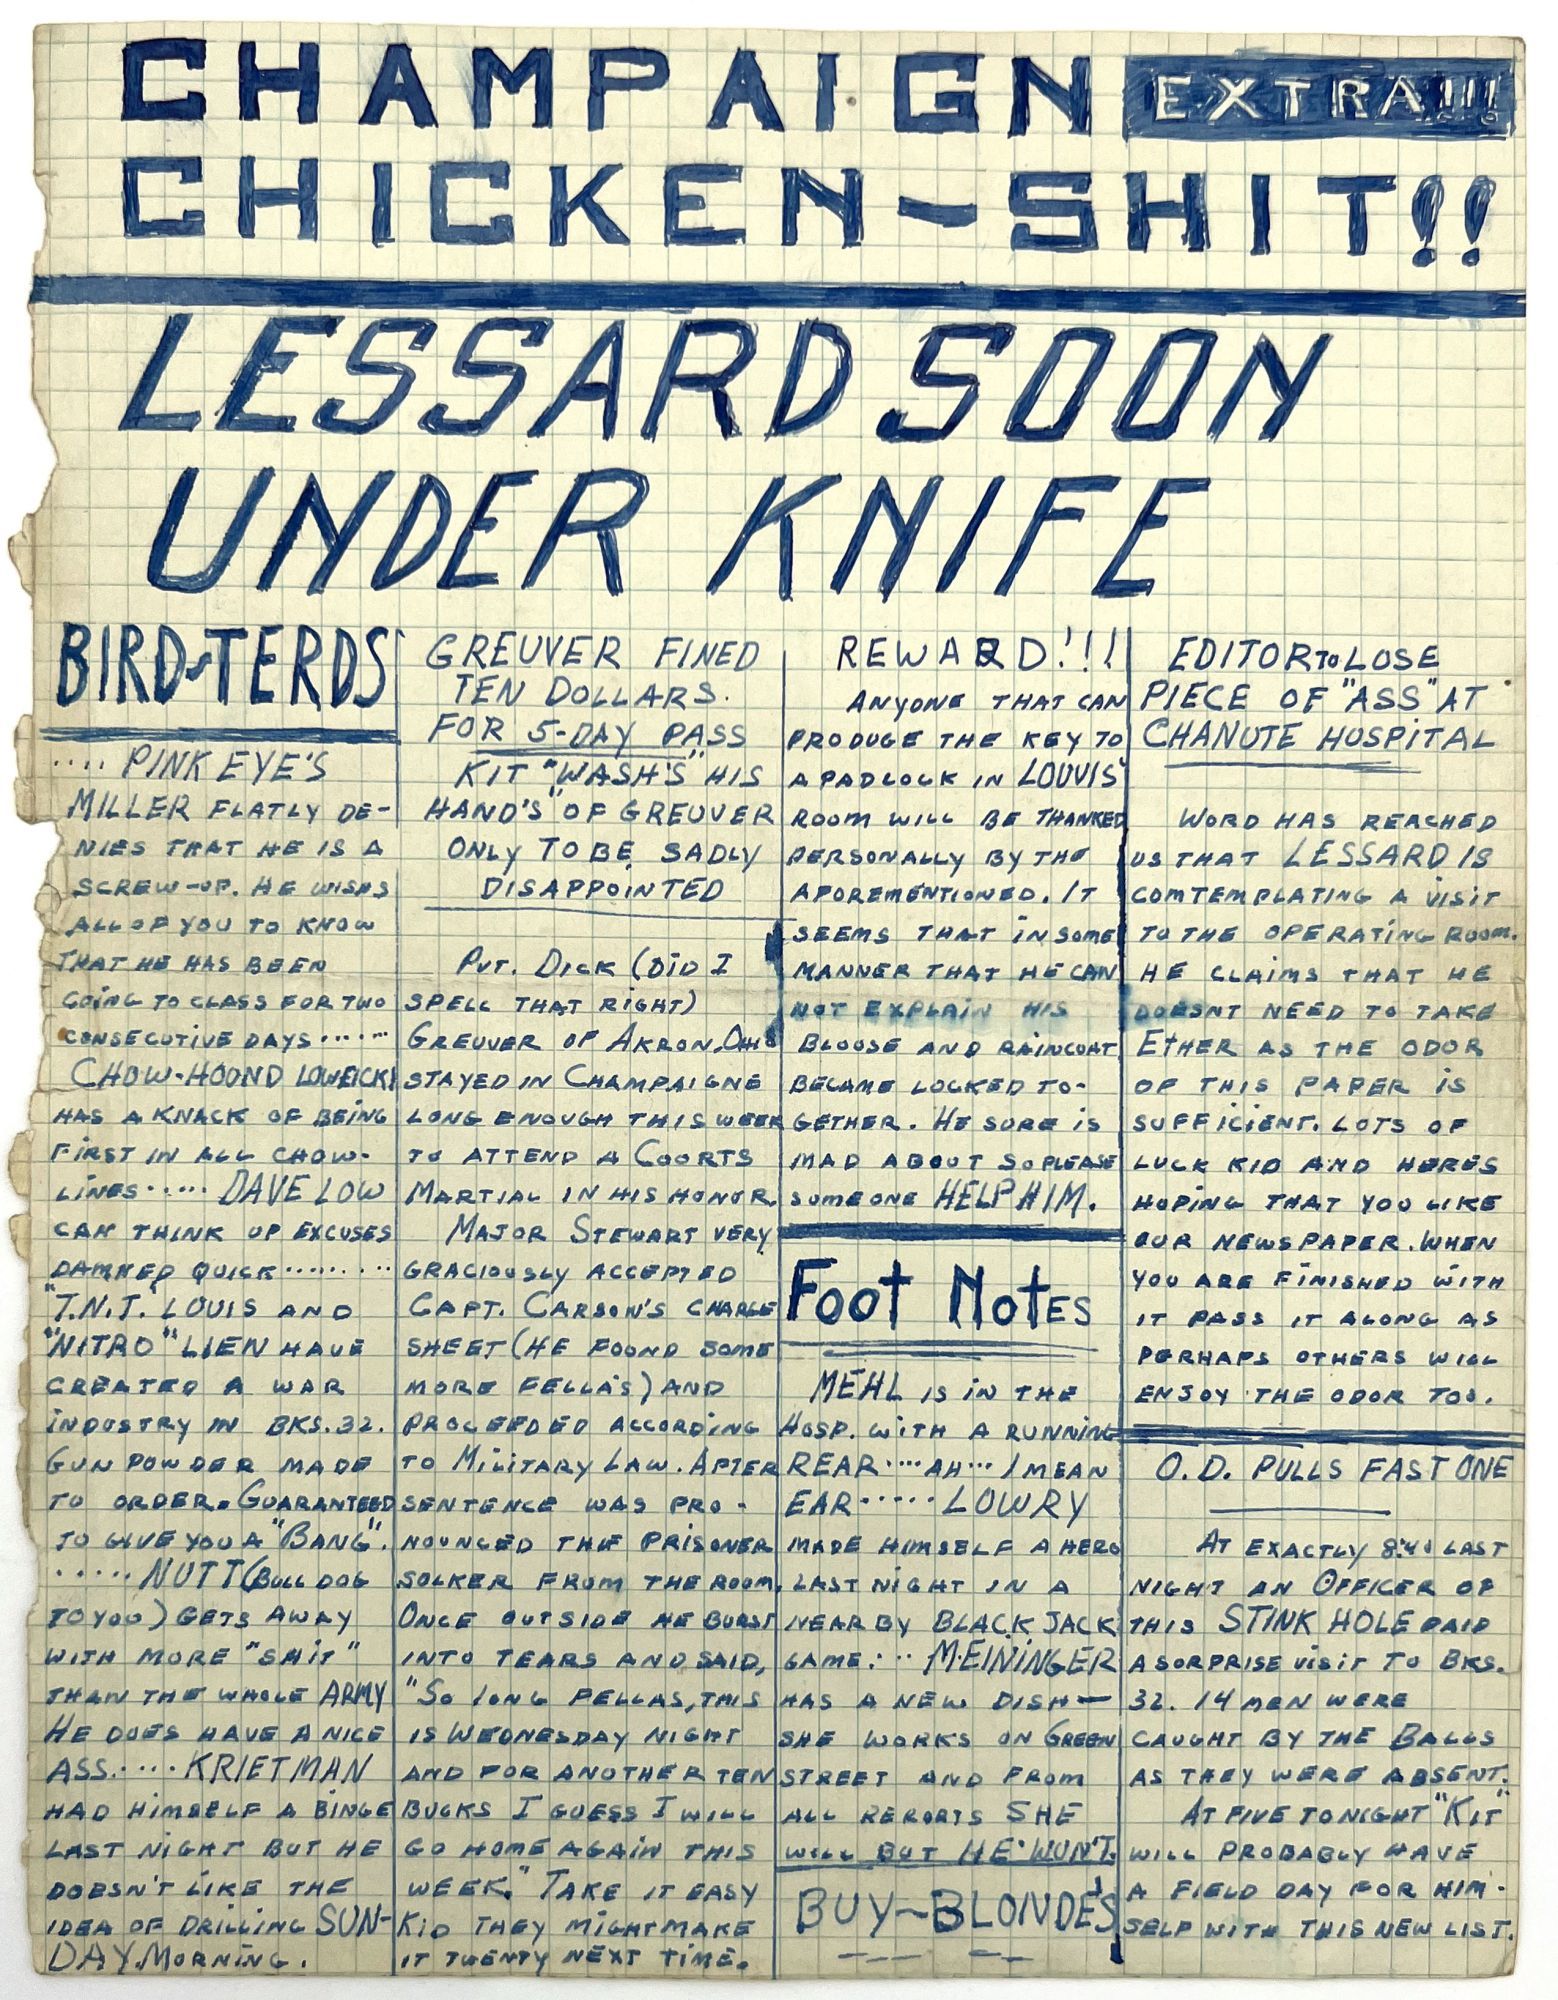 CHAMPAIGN EXTRA!!!
CHICKEN-SHIT!!
LESSARD SOON
UNDER KNIFE
BIRD-TERDS
.... PINK EYE'S
MILLER FLATLY DE-
NIES THAT HE IS A
SCREW-UP. HE WISHS
ALL OF YOU TO KNOW
THAT HE HAS BEEN
GOING TO CLASS FOR TWO
CONSECUTIVE DAYS ......
CHOW-HOUND LOWEICKI
HAS A KNACK OF BEING
FIRST IN ALL CHOW-
LINES ..... DAVE LOW
CAN THINK UP EXCUSES
DAMNED QUICK ........
"T.N.T." LOUIS AND
"NITRO" LIEN HAVE
CREATED A WAR
INDUSTRY IN BKS. 32.
GUN POWDER MADE
TO ORDER. GUARANTEED
TO GIVE YOU A "BANG".
..... NUTT (BULL DOG
TO YOU) GETS AWAY
WITH MORE "SHIT"
THAN THE WHOLE ARMY
HE DOES HAVE A NICE
ASS..... KRIETMAN
HAD HIMSELF A BINGE
LAST NIGHT BUT HE
DOESN'T LIKE THE
IDEA OF DRILLING SUN-
DAY MORNING.
GREUVER FINED
TEN DOLLARS.
FOR 5-DAY PASS
KIT "WASH'S" HIS
HAND'S" OF GREUVER
ONLY TO BE SADLY
DISAPPOINTED
PVT. DICK (DID I
SPELL THAT RIGHT)
GREUVER OF AKRON, OHIO
STAYED IN CHAMPAIGNE
LONG ENOUGH THIS WEEK
TO ATTEND A COURTS
MARTIAL IN HIS HONOR.
MAJOR STEWART VERY
GRACIOUSLY ACCEPTED
CAPT. CARSON'S CHARGE
SHEET (HE FOUND SOME
MORE FELLA'S) AND
PROCEEDED ACCORDING
TO MILITARY LAW. AFTER
SENTENCE WAS PRO-
NOUNCED THE PRISONER
SULKER FROM THE ROOM.
ONCE OUTSIDE HE BURST
INTO TEARS AND SAID,
"SO LONG FELLAS, THIS
IS WEDNESDAY NIGHT
AND FOR ANOTHER TEN
BUCKS I GUESS I WILL
GO HOME AGAIN THIS
WEEK." TAKE IT EASY
KID THEY MIGHT MAKE
IT TWENTY NEXT TIME.
REWARD!!!
ANYONE THAT CAN
PRODUCE THE KEY TO
A PADLOCK IN LOUVIS'
ROOM WILL BE THANKED
PERSONALLY BY THE
AFOREMENTIONED. IT
SEEMS THAT IN SOME
MANNER THAT HE CAN
NOT EXPLAIN HIS
BLOUSE AND RAINCOAT
BECAME LOCKED TO-
GETHER. HE SURE IS
MAD ABOUT SO PLEASE
SOMEONE HELP HIM.
FOOT NOTES
MEHL IS IN THE
HOSP. WITH A RUNNING
REAR .... AH ... I MEAN
EAR ..... LOWRY
MADE HIMSELF A HERO
LAST NIGHT IN A
NEARBY BLACK JACK
GAME. ... MEININGER
HAS A NEW DISH—
SHE WORKS ON GREEN
STREET AND FROM
ALL REPORTS SHE
WILL BUT HE WON'T.
BUY~BLONDE'S
EDITOR TO LOSE
PIECE OF "ASS" AT
CHANUTE HOSPITAL
WORD HAS REACHED
US THAT LESSARD IS
COMTEMPLATING A VISIT
TO THE OPERATING ROOM.
HE CLAIMS THAT HE
DOESNT NEED TO TAKE
ETHER AS THE ODOR
OF THIS PAPER IS
SUFFICIENT. LOTS OF
LUCK KID AND HERES
HOPING THAT YOU LIKE
OUR NEWSPAPER. WHEN
YOU ARE FINISHED WITH
IT PASS IT ALONG AS
PERHAPS OTHERS WILL
ENJOY THE ODOR TOO.
O.D. PULLS FAST ONE
AT EXACTLY LAST
NIGHT AN OFFICER OF
THIS STINK HOLE PAID
A SURPRISE VISIT TO BKS.
32. 14 MEN WERE
CAUGHT BY THE BALLS
AS THEY WERE ABSENT.
AT FIVE TONIGHT "KIT"
WILL PROBABLY HAVE
A FIELD DAY FOR HIM-
SELF WITH THIS NEW LIST.